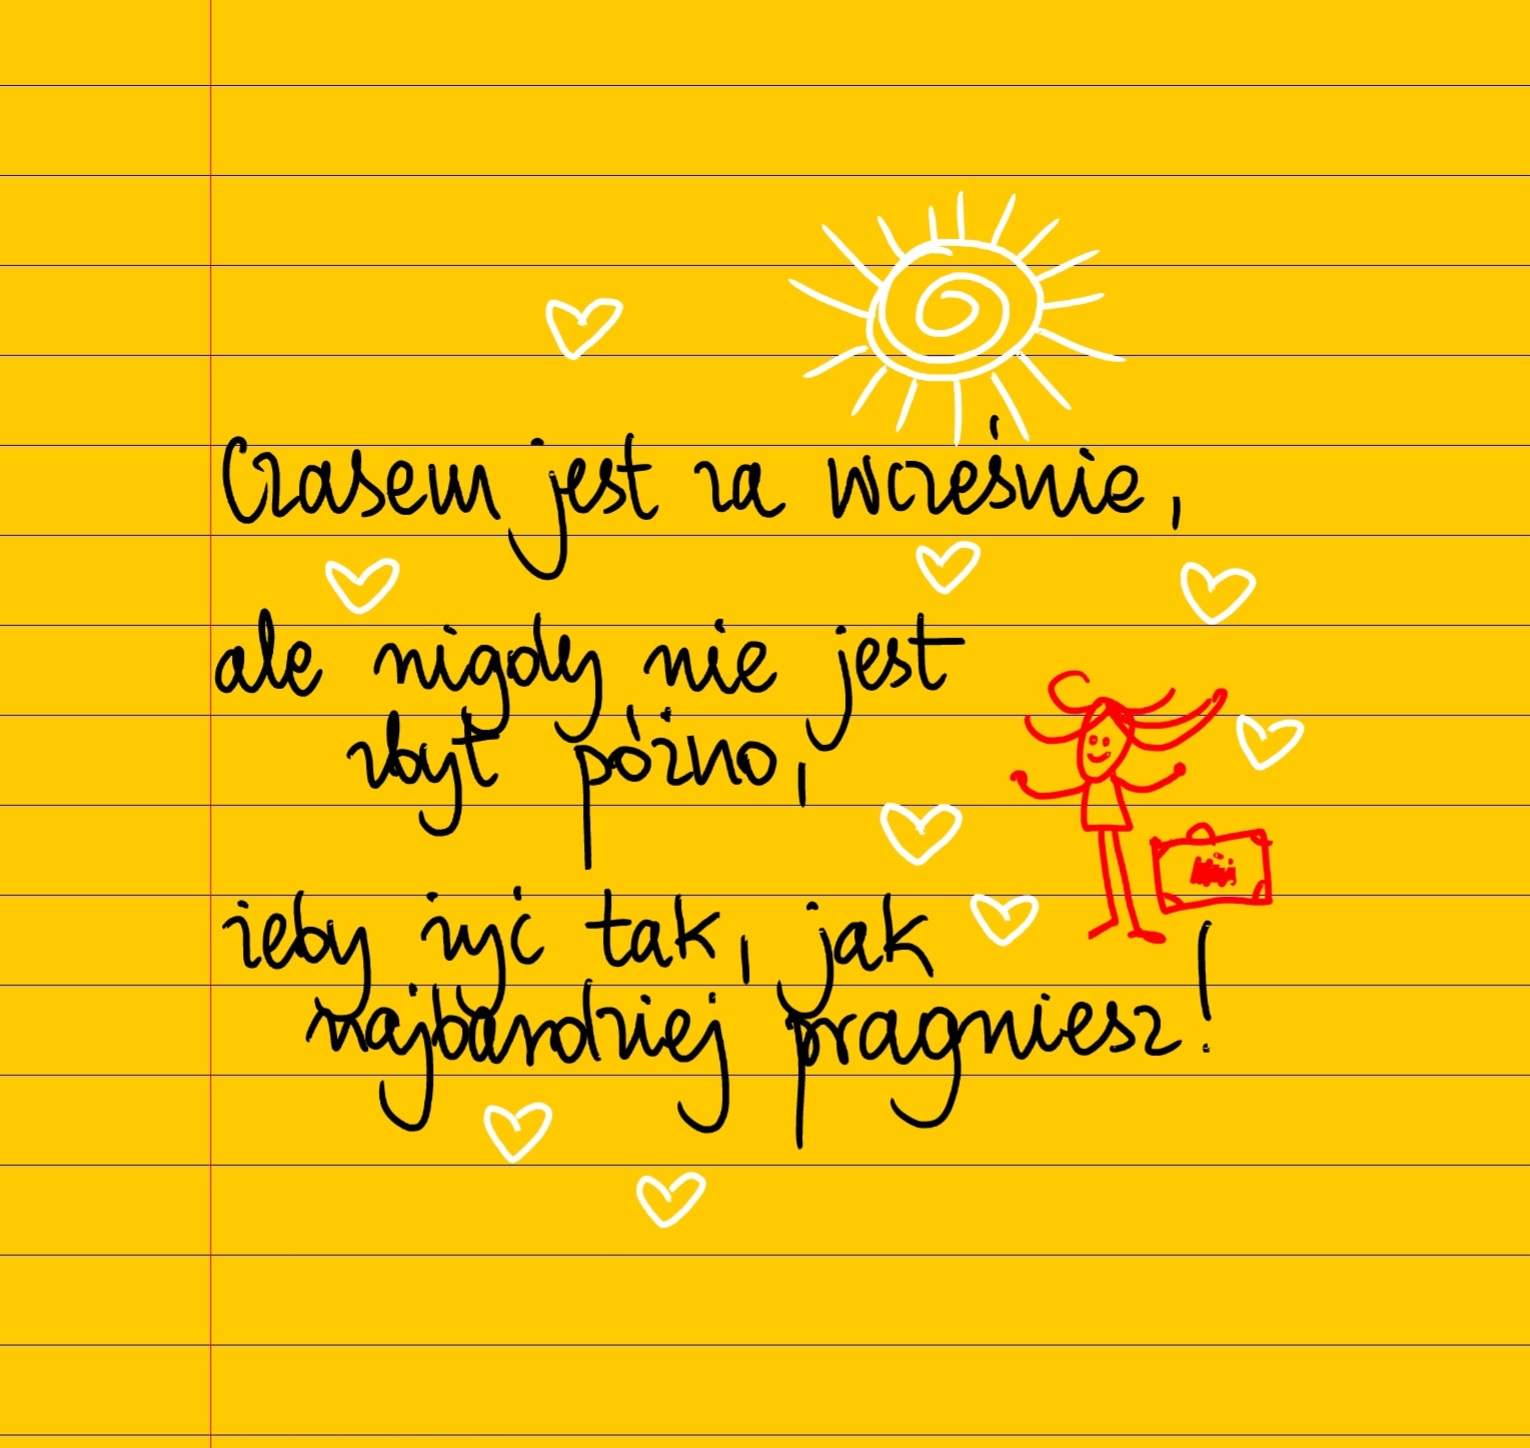 Czasem jest za wcześnie,
ale nigdy nie jest
zbyt późno,
żeby żyć tak, jak
najbardziej pragniesz!